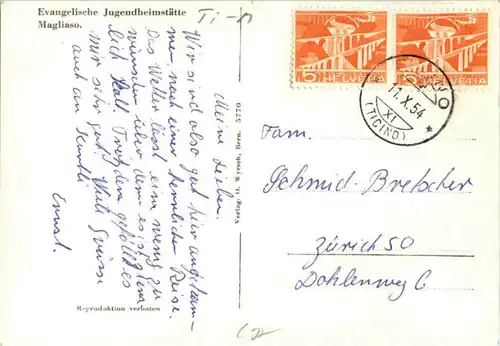 Evangelische Jugendheimstätte
Magliaso.
Ti-
Meine Lieben.
Wir sind also gut hier angekom-
men, nach einer herrlichen Reise.
Das Wetter lässt ein wenig zu
wünschen über, denn es ist ziem
lich kalt. Trotzdem gefällt es
mir sehr gut. Viele Grüsse
auch an
Ernst.
Reproduktion verboten
Verlag H. Bern. 5770
5 HELVETIA
5 HELVETIA
11.X.54
XI
(TICINO)
Fam.
Schmid-Bretscher
Zürich 50
Dahlienweg 6